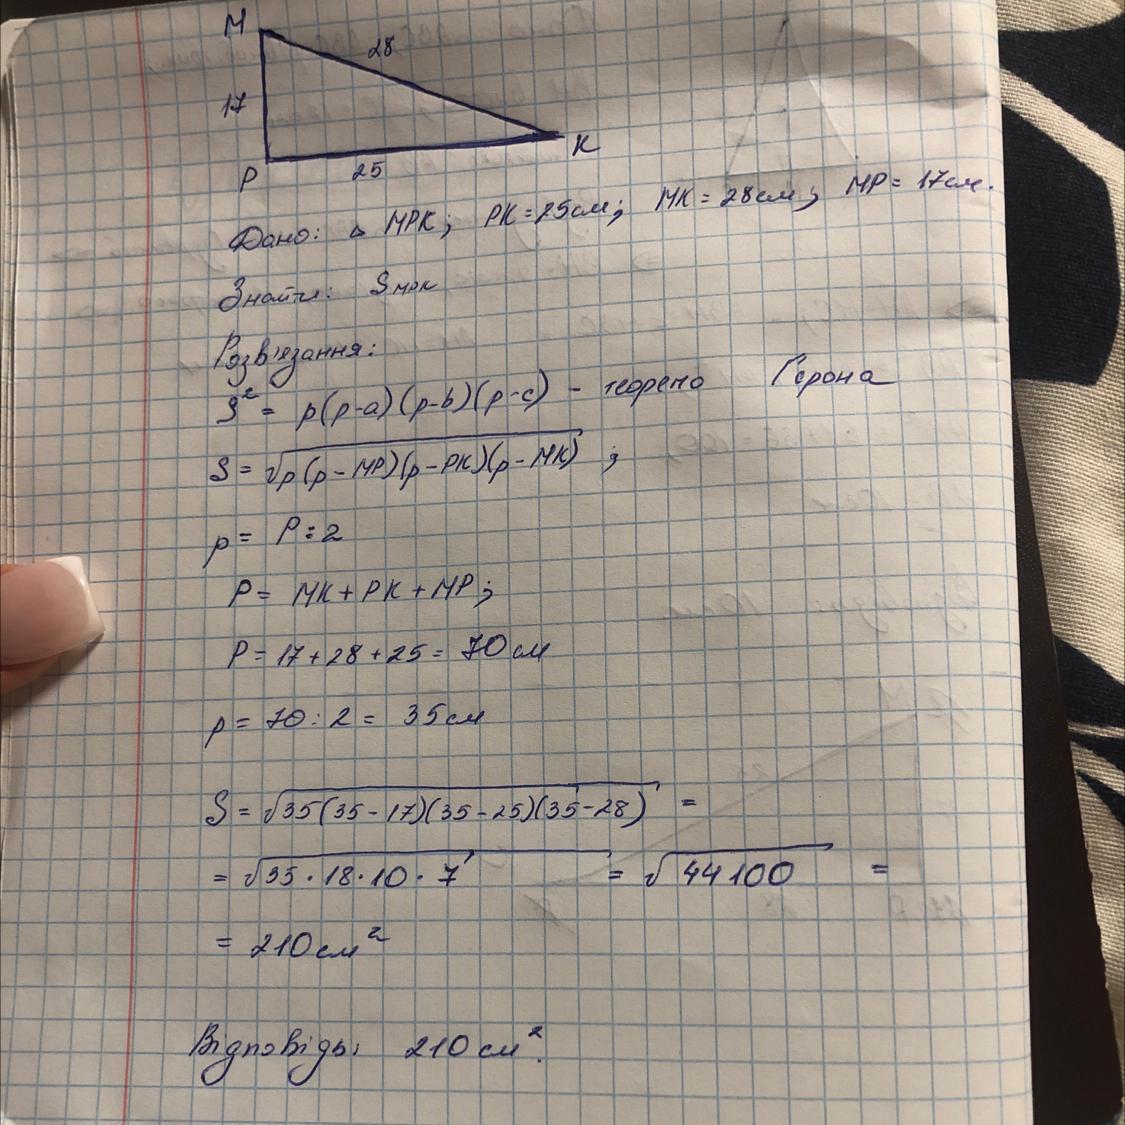 M
28
17
K
P
25
Дано: △ MPK; PK = 25см; MK = 28см; MP = 17см.
Знайти: Sмрк
Розв'язання:
S² = p(p-a)(p-b)(p-c) - теорема Герона
S = √p(p-MP)(p-PK)(p-MK) ;
p = P:2
P = MK + PK + MP;
P = 17 + 28 + 25 = 70 см
p = 70 : 2 = 35 см
S = √35(35-17)(35-25)(35-28) =
= √35·18·10·7 = √44100 =
= 210 см²
Відповідь: 210 см².